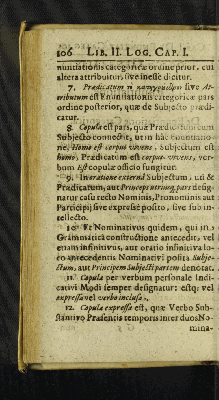 106 LIB. II. LOG. CAP. I.
nuntiationis categoricæ ordine prior, cui
altera attribuitur, sive inesse dicitur.
7. Prædicatum sive At-
tributum est Enuntiationis categoricæ pars
ordine posterior, quæ de Subjecto prædi-
catur.
8. Copula est pars, quæ Prædicatum cum
Subjecto connectit, ut in hâc enuntiatio-
ne, Homo est corpus vivens, Subjectum est
homo, Prædicatum est corpus vivens, ver-
bum Est copulæ officio fungitur.
9. In oratione externâ Subjectum, uti &
Prædicatum, aut Principe utriusq; pars desig-
natur casu recto Nominis, Pronominis aut
Participij sive expresse posito, sive sub in-
tellecto.
10. Et Nominativus quidem, qui in
Grammaticâ constructione antecedit, vel
etiam infinitivus, aut oratio infinitiva lo-
co antecedentis Nominativi posita Subje-
ctum, aut Principem Subjecti partem denotat.
11. Copula per verbum personale Indi-
cativi Modi semper designatur: estq; vel
expressa vel verbo inclusa.
12. Copula expressa est, quæ Verbo Sub-
stantivo Præsentis temporis inter duos No-
mina-